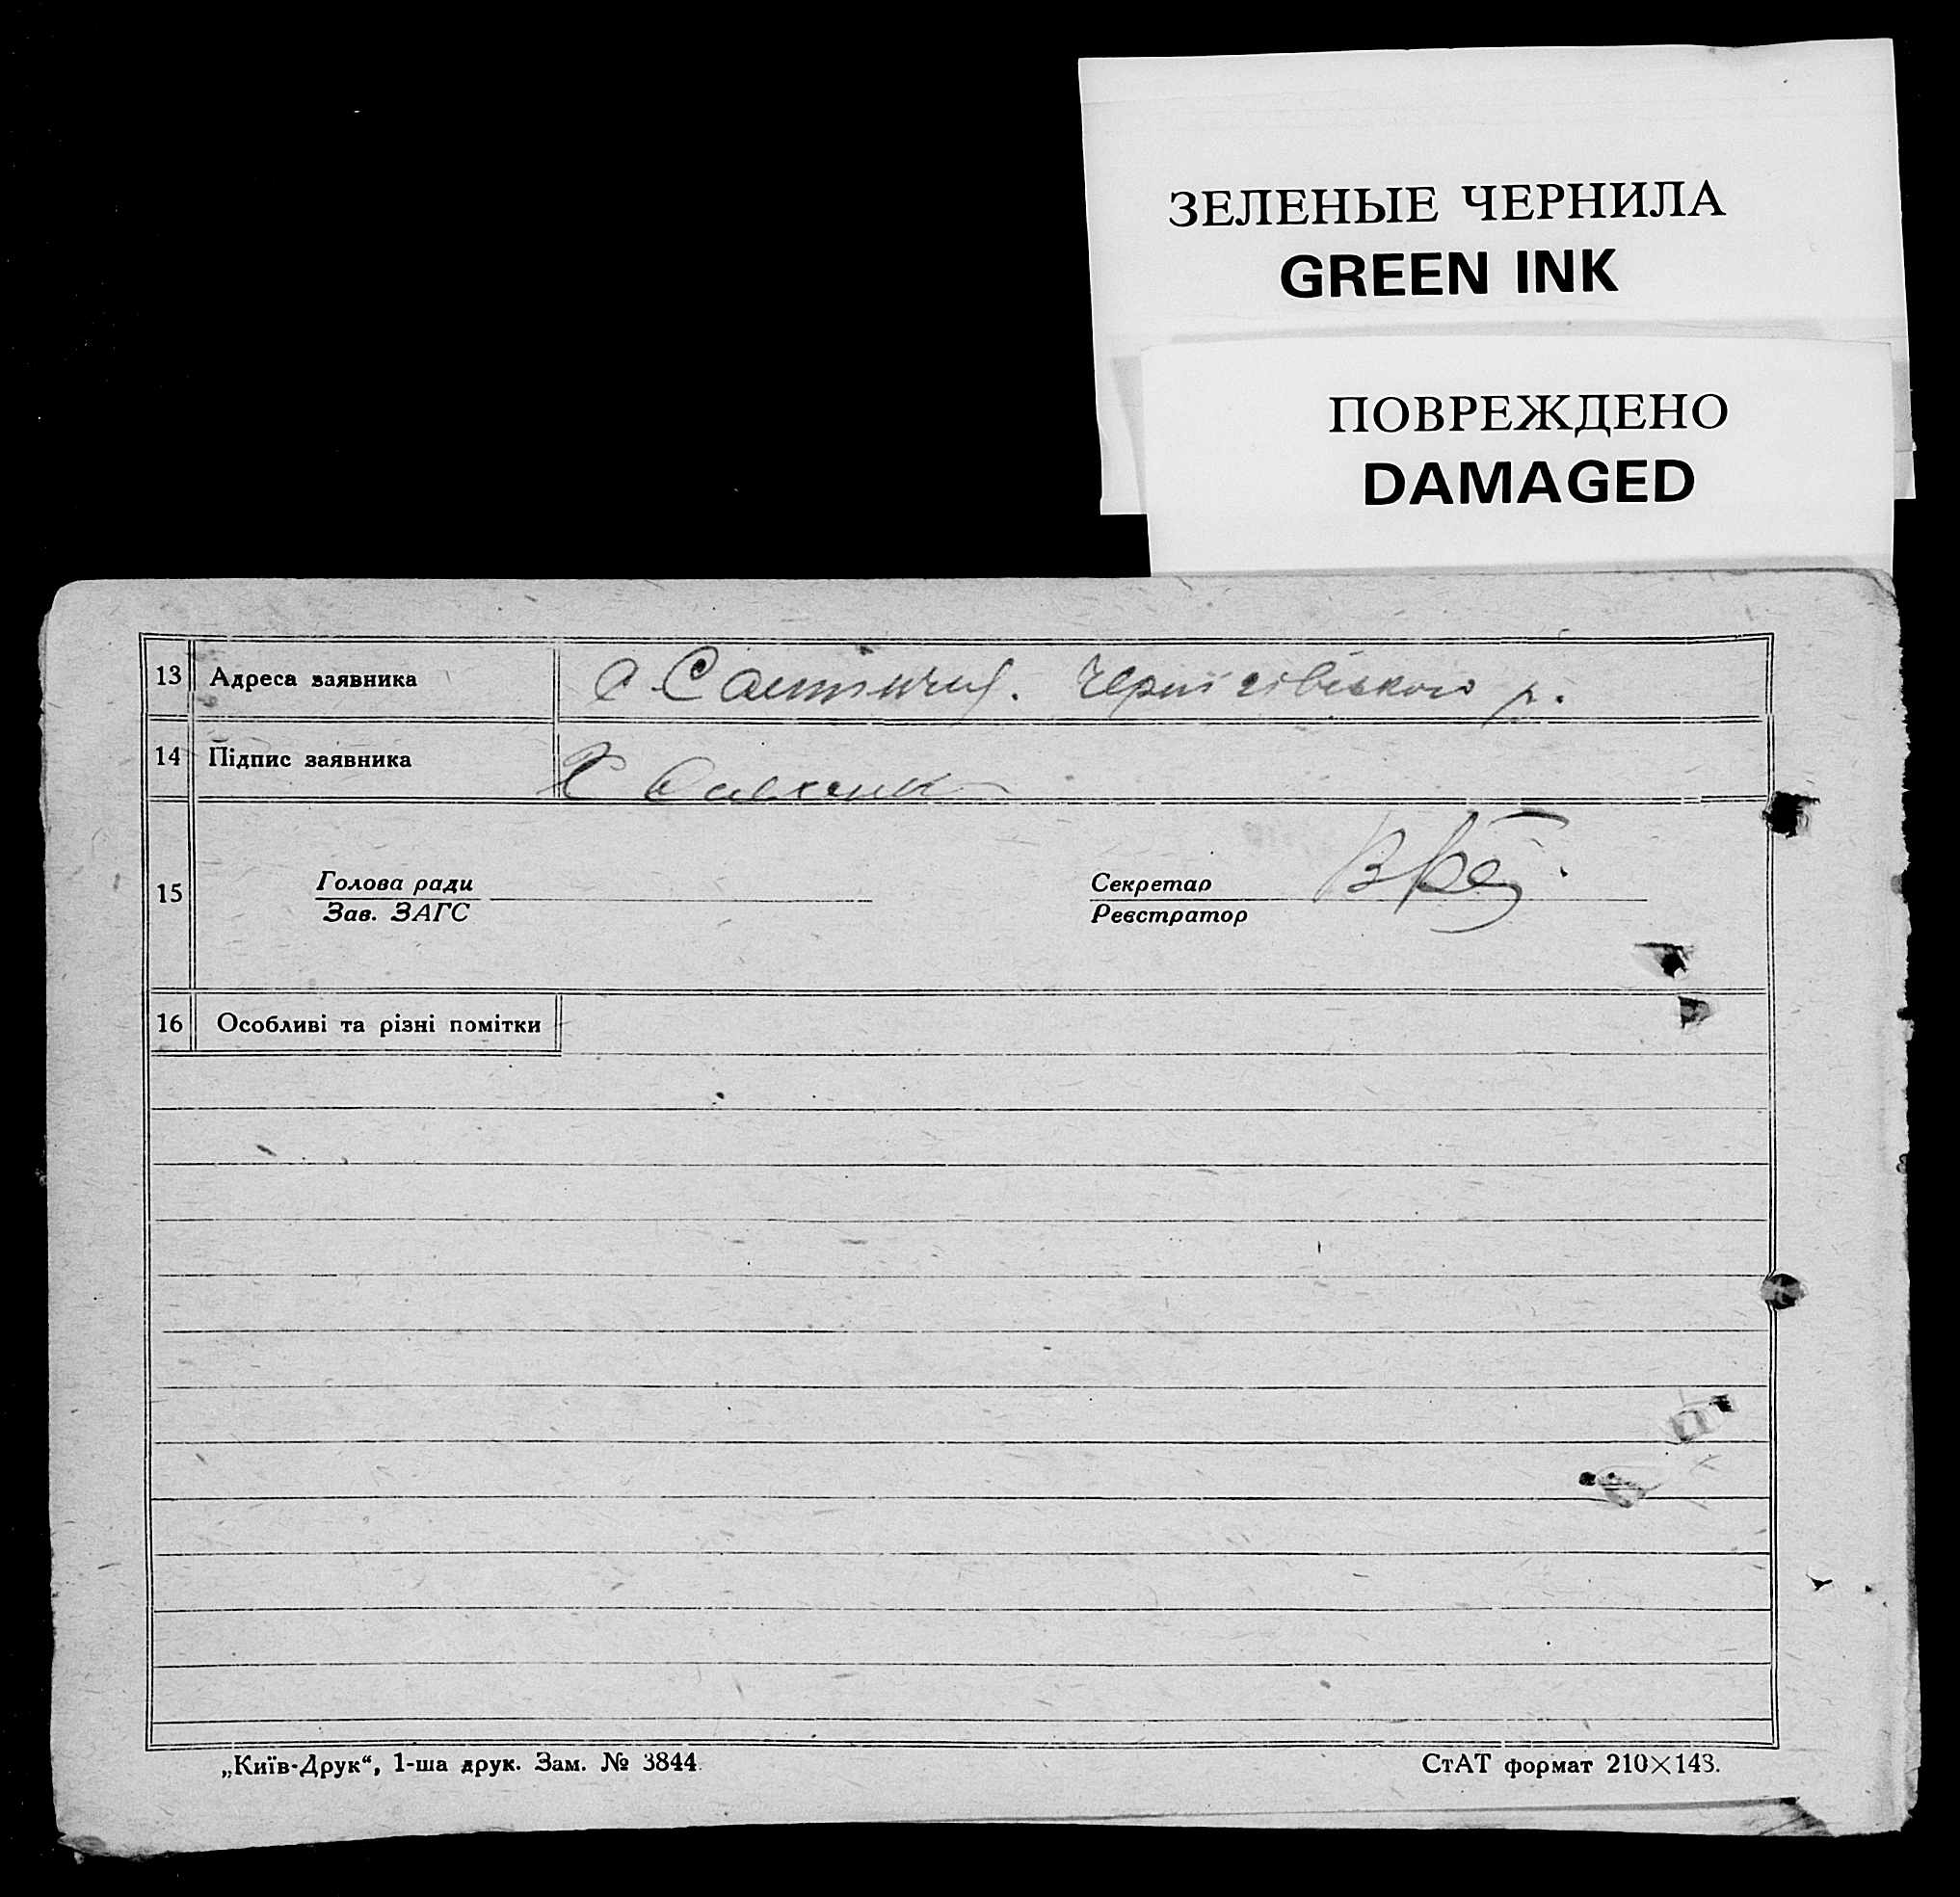 ЗЕЛЕНЫЕ ЧЕРНИЛА
GREEN INK
ПОВРЕЖДЕНО
DAMAGED
13 Адреса заявника с. Чернігівського р.
14 Підпис заявника
15 Голова ради
Зав. ЗАГС
Секретар
Реєстратор
16 Особливі та різні помітки
„Київ-Друк“, 1-ша друк. Зам. № 3844.
СтАТ формат 210×143.